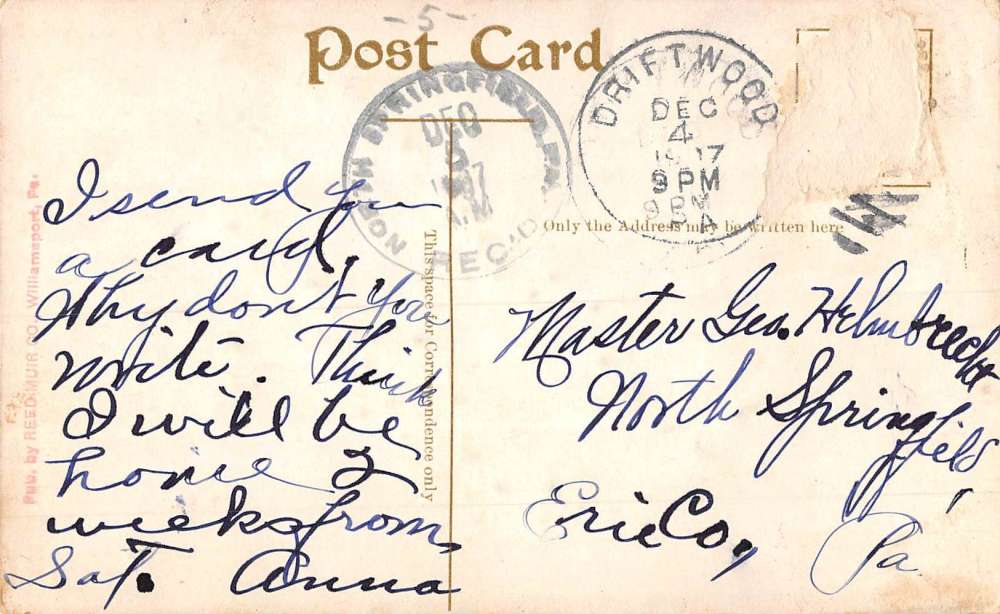 -5-
Post Card
NORTH SPRINGFIELD, PA.
DEC
5
A.M.
REC'D
DRIFTWOOD
DEC
4
9 PM
9 PM
PA
Only the Address may be written here
This space for Correspondence only
Pub. by REED MUIR CO., Williamsport, Pa.
I send you
a card.
Why don't you
write. Think
I will be
home 2
weeks from
Sat. Anna
Master Geo. Helmbrecht
North Springfield
Erie Co., Pa.